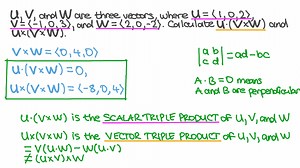 U, V, and W are three vectors, where U = ⟨1, 0, 2⟩,
V = ⟨-1, 0, 3⟩, and W = ⟨2, 0, -2⟩. Calculate U·(V×W) and
U×(V×W).
V×W = ⟨0, 4, 0⟩
U·(V×W) = 0,
U×(V×W) = ⟨-8, 0, 4⟩
|a b|
|c d| = ad-bc
A·B = 0 means
A and B are perpendicular
U·(V×W) is the SCALAR TRIPLE PRODUCT of U, V, and W
U×(V×W) is the VECTOR TRIPLE PRODUCT of U, V, and W
= V(U·W) - W(U·V)
≠ (U×V)×W